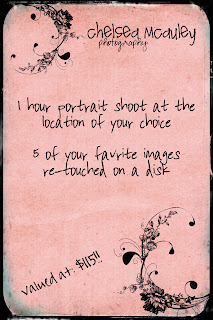 chelsea mcauley
photography
1 hour portrait shoot at the
location of your choice
5 of your favrite images
re-touched on a disk
valued at: $115!!